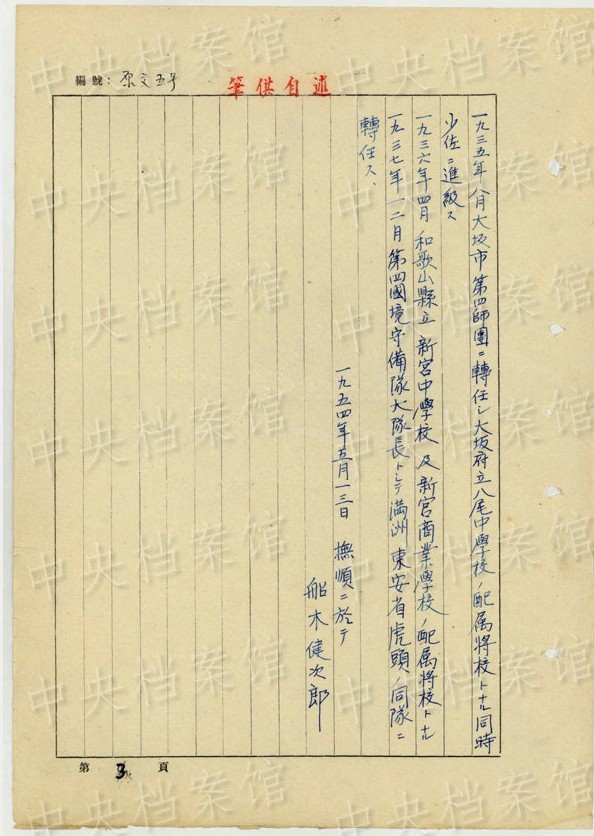 編號：原文五号
筆供自述
一九三五年八月大坂市第四師團ニ轉任シ大坂府立八尾中學校ノ配属将校トナル同時
少佐ニ進級ス
一九三六年四月和歌山縣立新宮中學校及新宮商業學校ノ配属将校トナル
一九三七年一二月第四國境守備隊大隊長トシテ満洲東安省虎頭ノ同隊ニ
轉任ス、
一九五四年五月一三日 撫順ニ於テ
船木健次郎
第3頁
中央档案馆